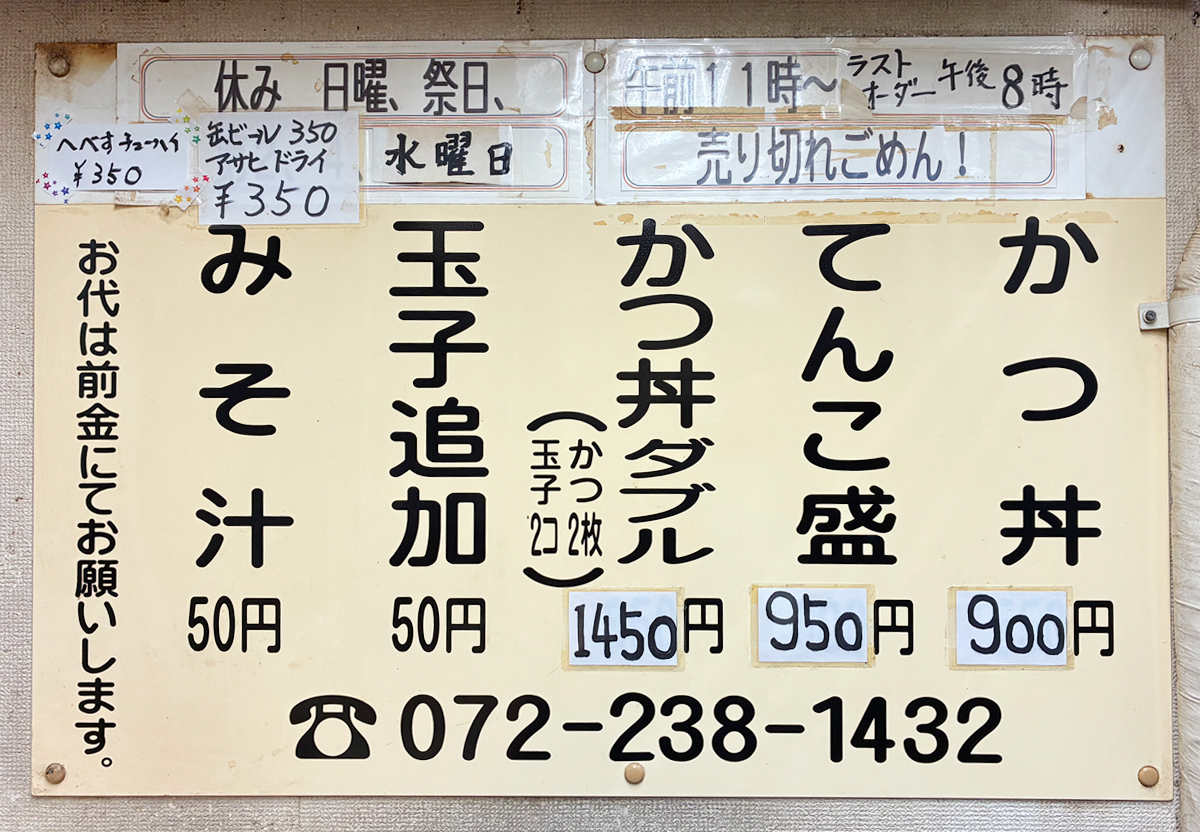 休み 日曜、祭日、
水曜日
午前11時～ラストオーダー午後8時
売り切れごめん！
へべすチューハイ
¥350
缶ビール 350
アサヒ ドライ
¥350
かつ丼
900円
てんこ盛
950円
かつ丼ダブル
（かつ2枚
玉子2コ）
1450円
玉子追加
50円
みそ汁
50円
お代は前金にてお願いします。
☎072-238-1432